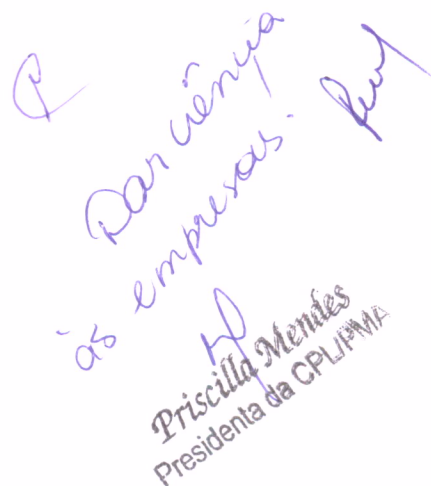 Dar ciência
às empresas.
Priscilla Mendes
Presidenta da CPL/PMA